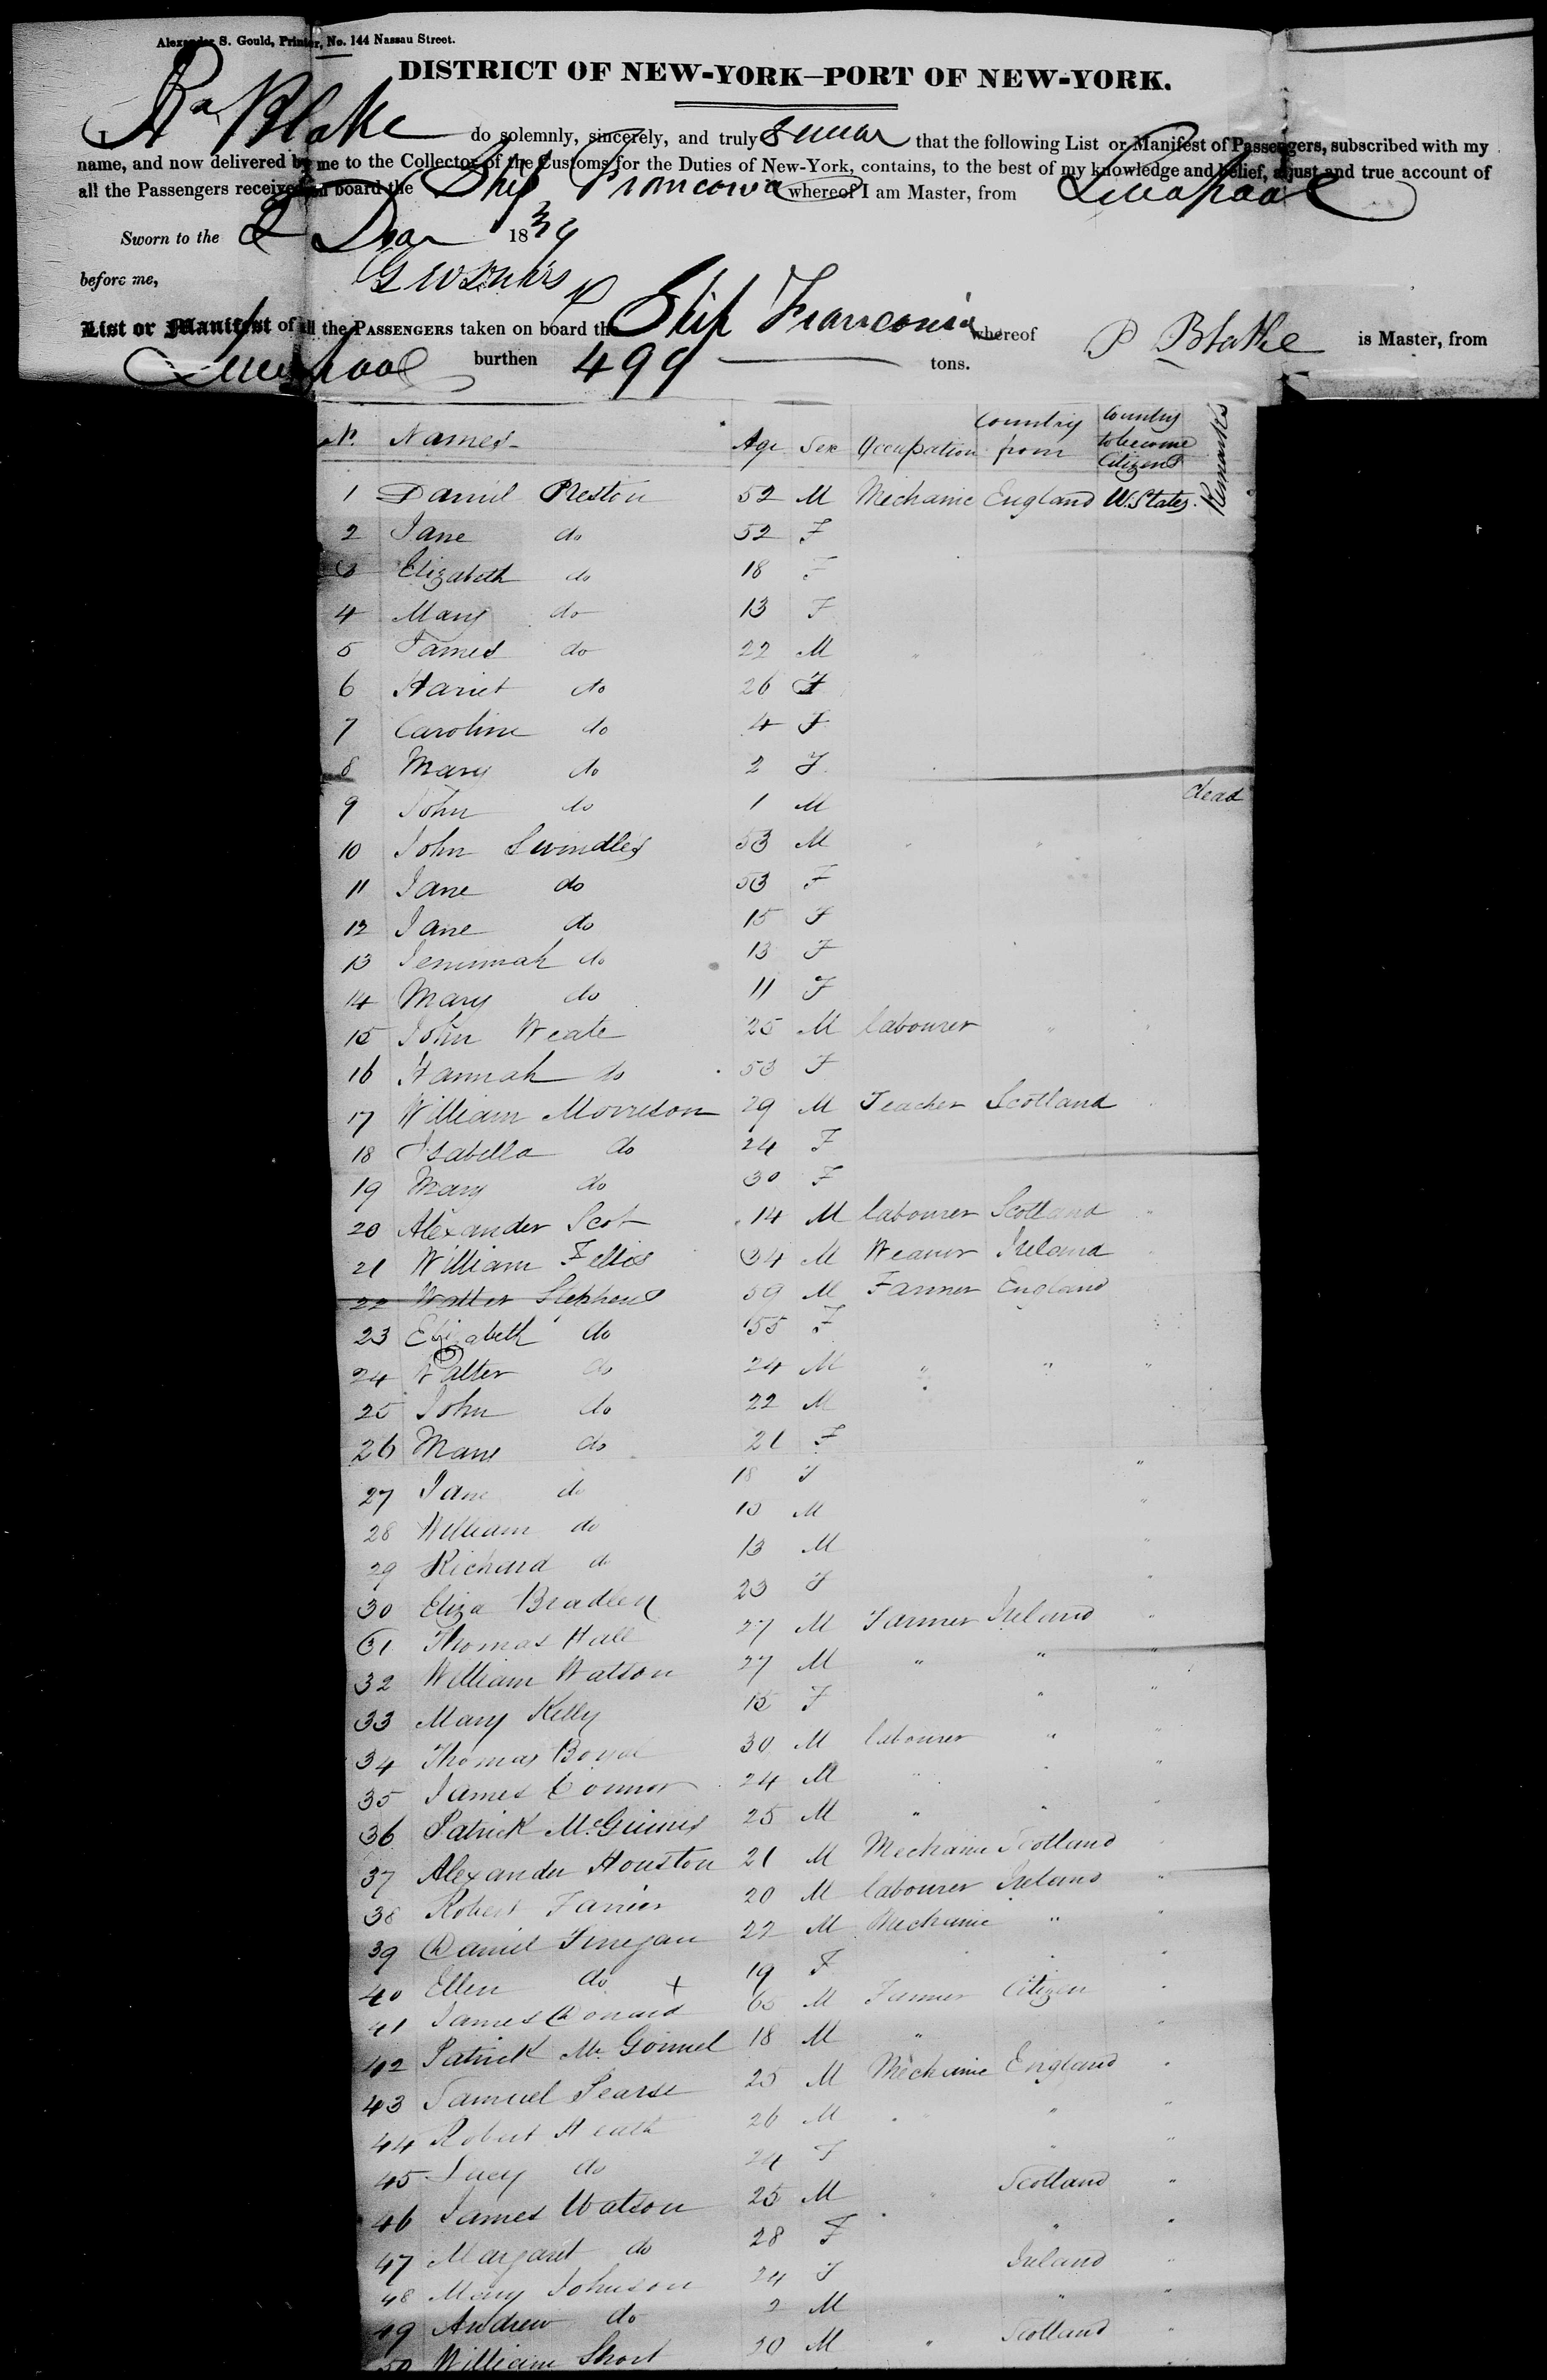 Alexander S. Gould, Printer, No. 144 Nassau Street.
DISTRICT OF NEW-YORK—PORT OF NEW-YORK.
Blake do solemnly, sincerely, and truly swear that the following List or Manifest of Passengers, subscribed with my
name, and now delivered by me to the Collector of the Customs for the Duties of New-York, contains, to the best of my knowledge and belief, a just and true account of
all the Passengers received on board the Ship Franconia whereof I am Master, from Liverpool
Sworn to the 2 Dear 1839
before me,
List or Manifest of all the PASSENGERS taken on board the Ship Franconia whereof P Blake is Master, from
Liverpool burthen 499 tons.
No. Names Age Sex Occupation Country from Country to become Citizens Remarks
1 Daniel Preston 52 M Mechanic England U. States.
2 Jane do 52 F
3 Elizabeth do 18 F
4 Mary do 13 F
5 James do 22 M " " "
6 Hariet do 26 F
7 Caroline do 4 F
8 Mary do 2 F
9 John do 1 M dead
10 John Swindles 53 M " "
11 Jane do 53 F
12 Jane do 15 F
13 Jemimah do 13 F
14 Mary do 11 F
15 John Weate 25 M labourer " "
16 Hannah do 53 F
17 William Morrison 29 M Teacher Scotland "
18 Isabella do 24 F
19 Mary do 30 F
20 Alexander Scot 14 M labourer Scotland "
21 William Fellis 34 M Weaver Ireland "
22 Walter Stephens 59 M Farmer England
23 Elizabeth do 55 F
24 Walter do 24 M " " "
25 John do 22 M "
26 Mary do 21 F
27 Jane do 18 F "
28 William do 15 M "
29 Richard do 13 M "
30 Eliza Bradley 23 F "
31 Thomas Hall 27 M Farmer Ireland "
32 William Watson 27 M " " "
33 Mary Kelly 15 F " "
34 Thomas Boyd 30 M labourer " "
35 James Connor 24 M " " "
36 Patrick McGuinis 25 M " " "
37 Alexander Houston 21 M Mechanic Scotland "
38 Robert Farrier 20 M labourer Ireland "
39 Daniel Finegan 22 M Mechanic " "
40 Ellen do 19 F " "
41 James Donard + 65 M Farmer Citizen "
42 Patrick Mc Gonnel 18 M " "
43 Samuel Pearse 25 M Mechanic England "
44 Robert Heath 26 M " " "
45 Lucy do 24 F " "
46 James Watson 25 M " Scotland "
47 Margaret do 28 F " "
48 Mary Johnson 24 F Ireland "
49 Andrew do 2 M " "
50 William Short 30 M " Scotland "